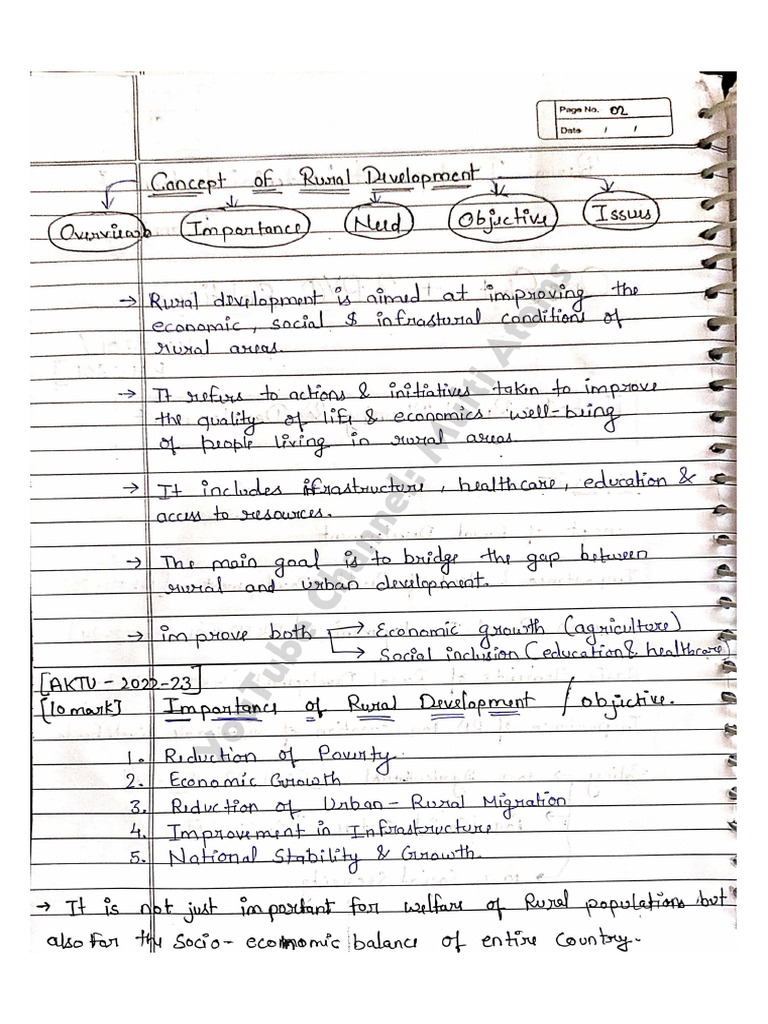 Page No. 02
Date / /
Concept of Rural Development
Overview Importance Need Objective Issues
→ Rural development is aimed at improving the
economic, social & infrastural conditions of
rural areas.
→ It refers to actions & initiatives taken to improve
the quality of life & economics well-being
of people living in rural areas.
→ It includes ifrastructure, healthcare, education &
access to resources.
→ The main goal is to bridge the gap between
rural and urban development.
→ improve both → Economic growth (agriculture)
→ Social inclusion (education & healthcare)
[AKTU - 2022-23]
[10 mark] Importance of Rural Development / objective.
1. Reduction of Poverty.
2. Economic Growth
3. Reduction of Urban - Rural Migration
4. Improvement in Infrastructure
5. National Stability & Growth.
→ It is not just important for welfare of Rural populations but
also for the Socio-economic balance of entire Country.
YouTube Channel: Multi Atoms